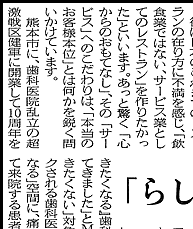 ランの在り方に不満を感じ、「飲
食業ではない、サービス業とし
てのレストラン」を作りたかっ
た」といいます。あっと驚く、「心
からのおもてなし」。その「サー
ビス」へのこだわりは、「本当の
お客様本位」とは何かを鋭く問
いかけています。
熊本市に、歯科医院乱立の超
激戦区健軍に開業して10周年を
「らし
きたくなる』歯科
てきました」と
きたくない」対
クされる歯科医
なる「空間」に、痛
て来院する患者